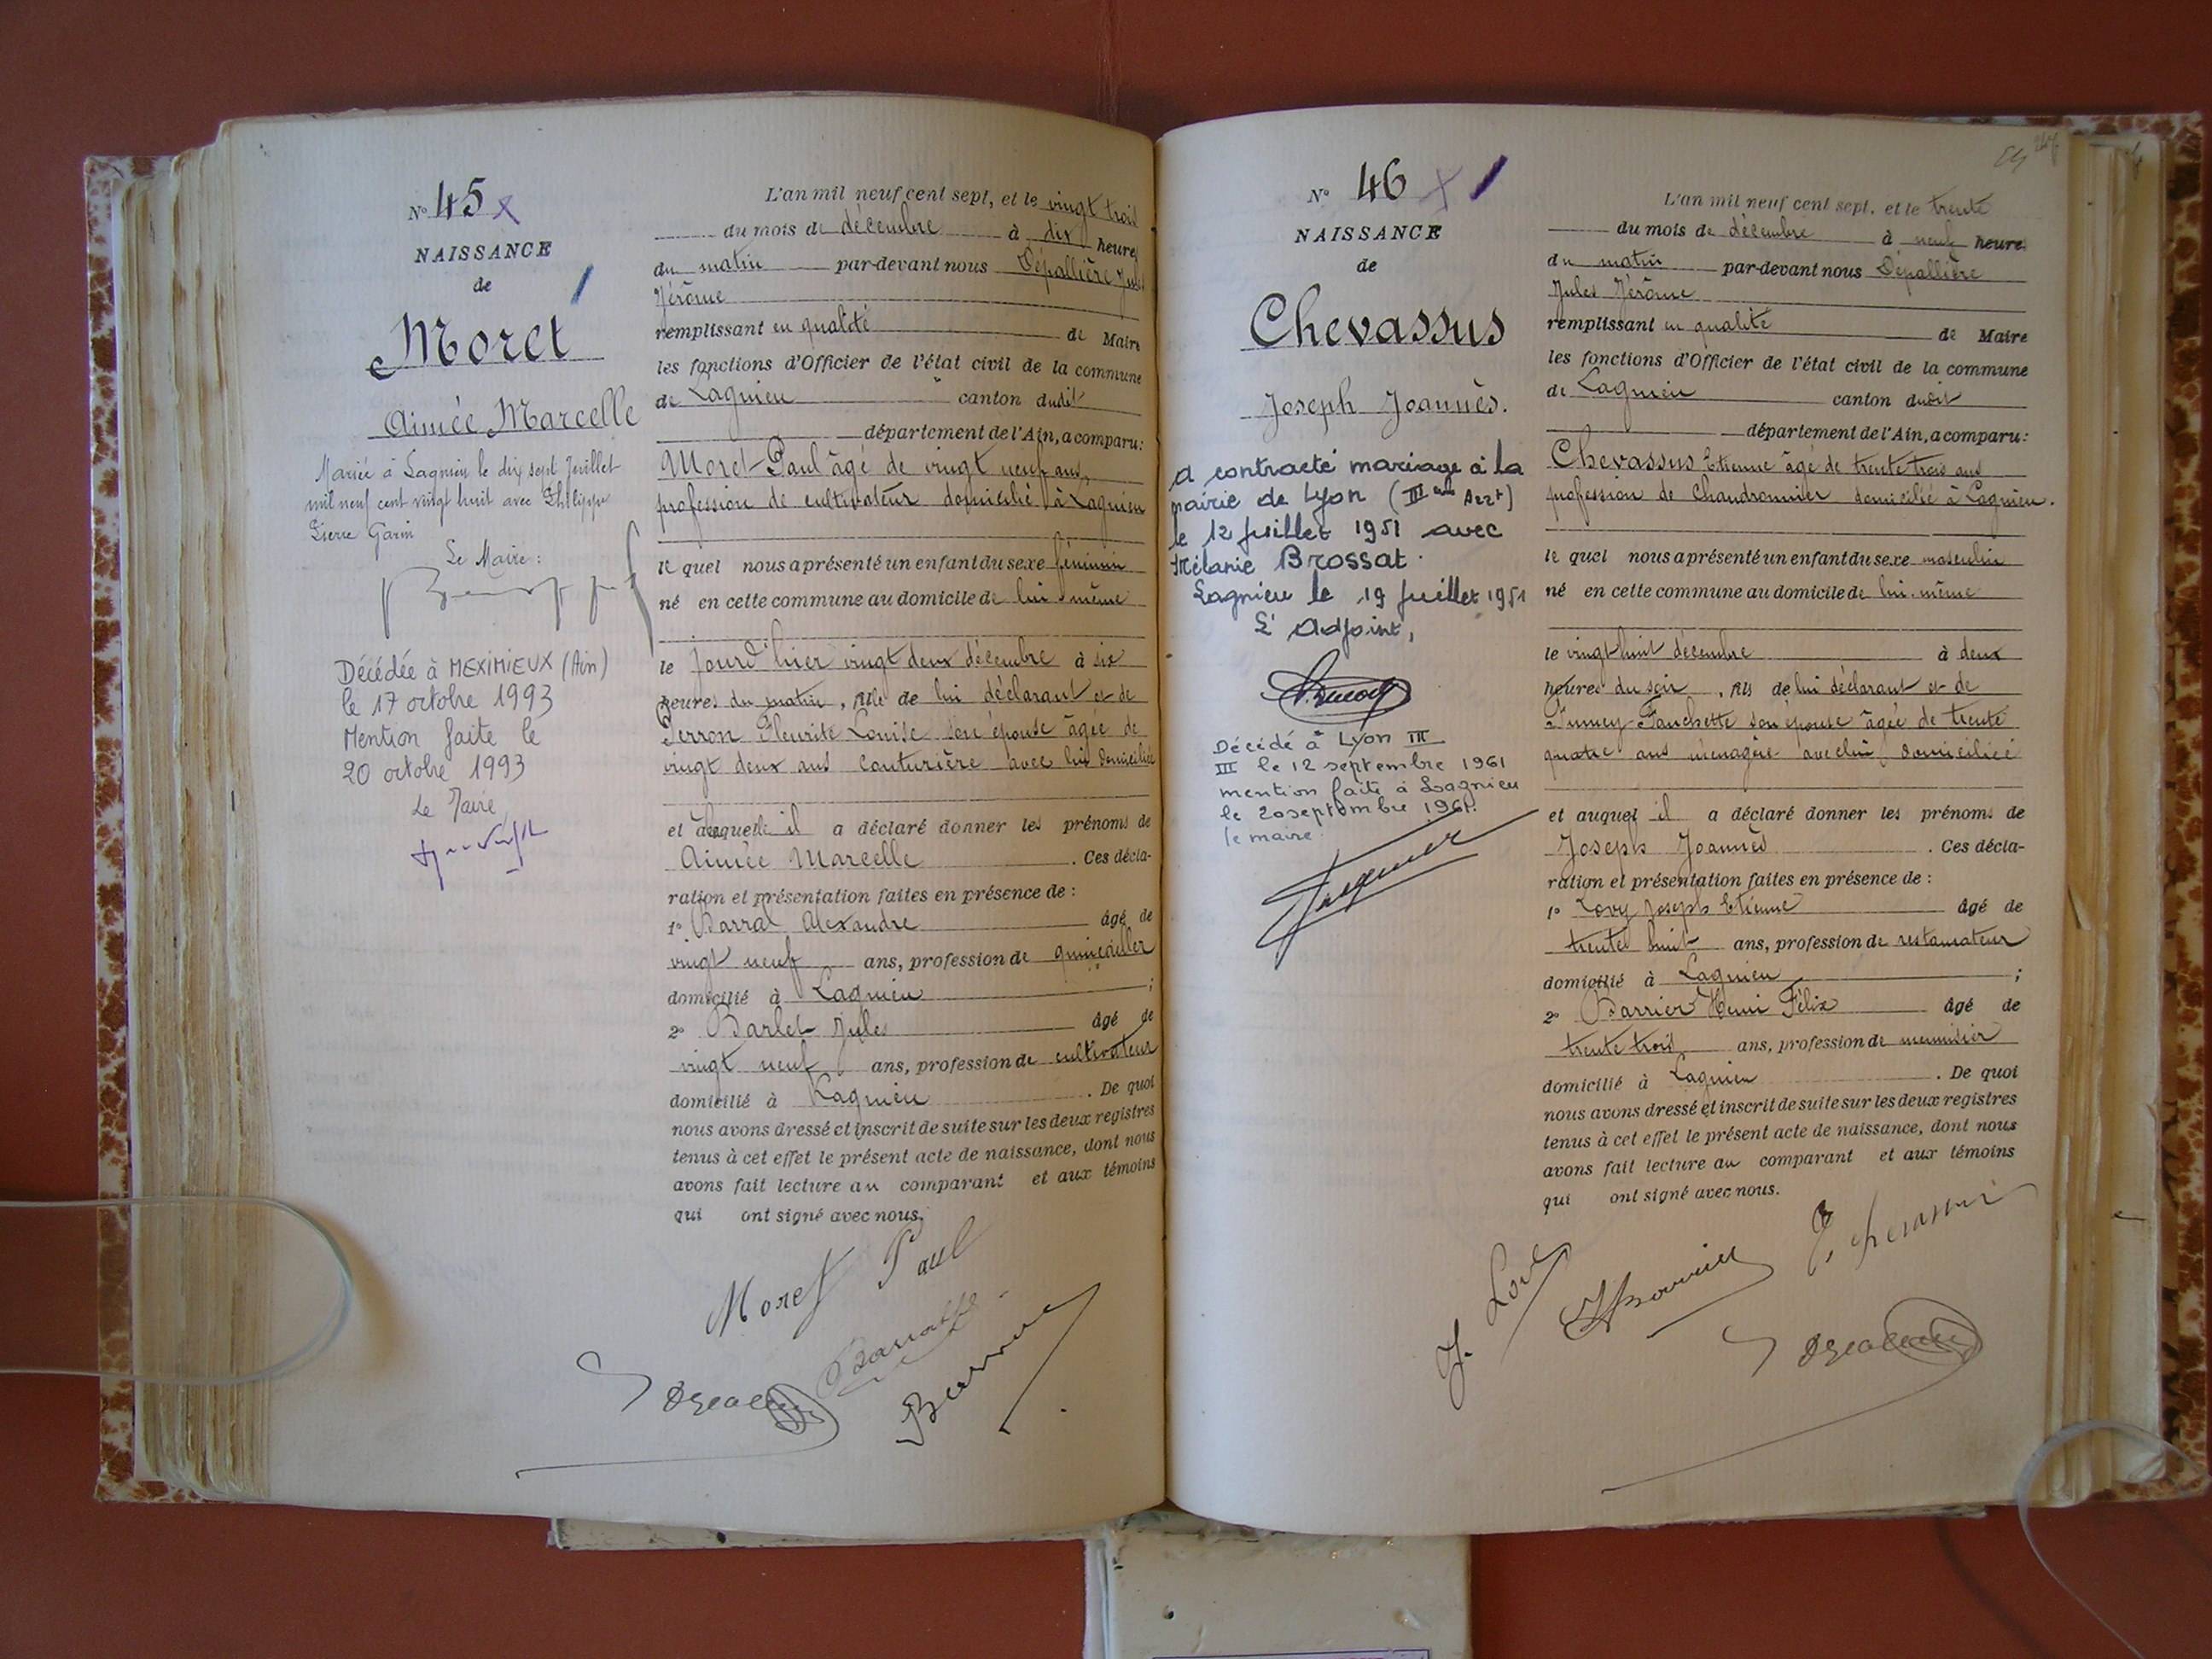 N° 45 x
NAISSANCE
de
Moret
Aimée Marcelle
Mariée à Lagnieu le dix sept Juillet
mil neuf cent vingt huit avec Philippe
Pierre Garin
Le Maire :
Décédée à MEXIMIEUX (Ain)
le 17 octobre 1993
Mention faite le
20 octobre 1993
Le Maire
L'an mil neuf cent sept, et le vingt trois
du mois de décembre à dix heures
du matin par-devant nous Dépallière Jules
Jérôme
remplissant en qualité de Maire
les fonctions d'Officier de l'état civil de la commune
de Lagnieu canton dudit
département de l'Ain, a comparu :
Moret Paul âgé de vingt neuf ans,
profession de cultivateur domicilié à Lagnieu
le quel nous a présenté un enfant du sexe féminin
né en cette commune au domicile de lui même
le jourd'hier vingt deux décembre à six
heures du matin, fille de lui déclarant et de
Perron Fleurite Louise son épouse âgée de
vingt deux ans couturière avec lui domiciliée
et à laquelle il a déclaré donner les prénoms de
Aimée Marcelle . Ces décla-
ration et présentation faites en présence de :
1° Barral Alexandre âgé de
vingt neuf ans, profession de quincailler
domicilié à Lagnieu ;
2° Barlet Jules âgé de
vingt neuf ans, profession de cultivateur
domicilié à Lagnieu . De quoi
nous avons dressé et inscrit de suite sur les deux registres
tenus à cet effet le présent acte de naissance, dont nous
avons fait lecture au comparant et aux témoins
qui ont signé avec nous.
Moret Paul
N° 46 x
NAISSANCE
de
Chevassus
Joseph Joannès.
a contracté mariage à la
mairie de Lyon (III eme Arrt)
le 12 juillet 1951 avec
Mélanie Brossat.
Lagnieu le 19 juillet 1951
L'Adjoint,
Décédé à Lyon III
III le 12 septembre 1961
mention faite à Lagnieu
le 20 septembre 1961.
le maire
L'an mil neuf cent sept, et le trente
du mois de décembre à neuf heures
du matin par-devant nous Dépallière
Jules Jérôme
remplissant en qualité de Maire
les fonctions d'Officier de l'état civil de la commune
de Lagnieu canton dudit
département de l'Ain, a comparu :
Chevassus Etienne âgé de trente trois ans
profession de chaudronnier domicilié à Lagnieu.
le quel nous a présenté un enfant du sexe masculin
né en cette commune au domicile de lui-même
le vingt huit décembre à deux
heures du soir, fils de lui déclarant et de
Fanchette son épouse âgée de trente
quatre ans ménagère avec lui domiciliée
et auquel il a déclaré donner les prénoms de
Joseph Joannès . Ces décla-
ration et présentation faites en présence de :
1° Lovy Joseph Etienne âgé de
trente huit ans, profession de restaurateur
domicilié à Lagnieu ;
2° Barrier Henri Félix âgé de
trente trois ans, profession de menuisier
domicilié à Lagnieu . De quoi
nous avons dressé et inscrit de suite sur les deux registres
tenus à cet effet le présent acte de naissance, dont nous
avons fait lecture au comparant et aux témoins
qui ont signé avec nous.